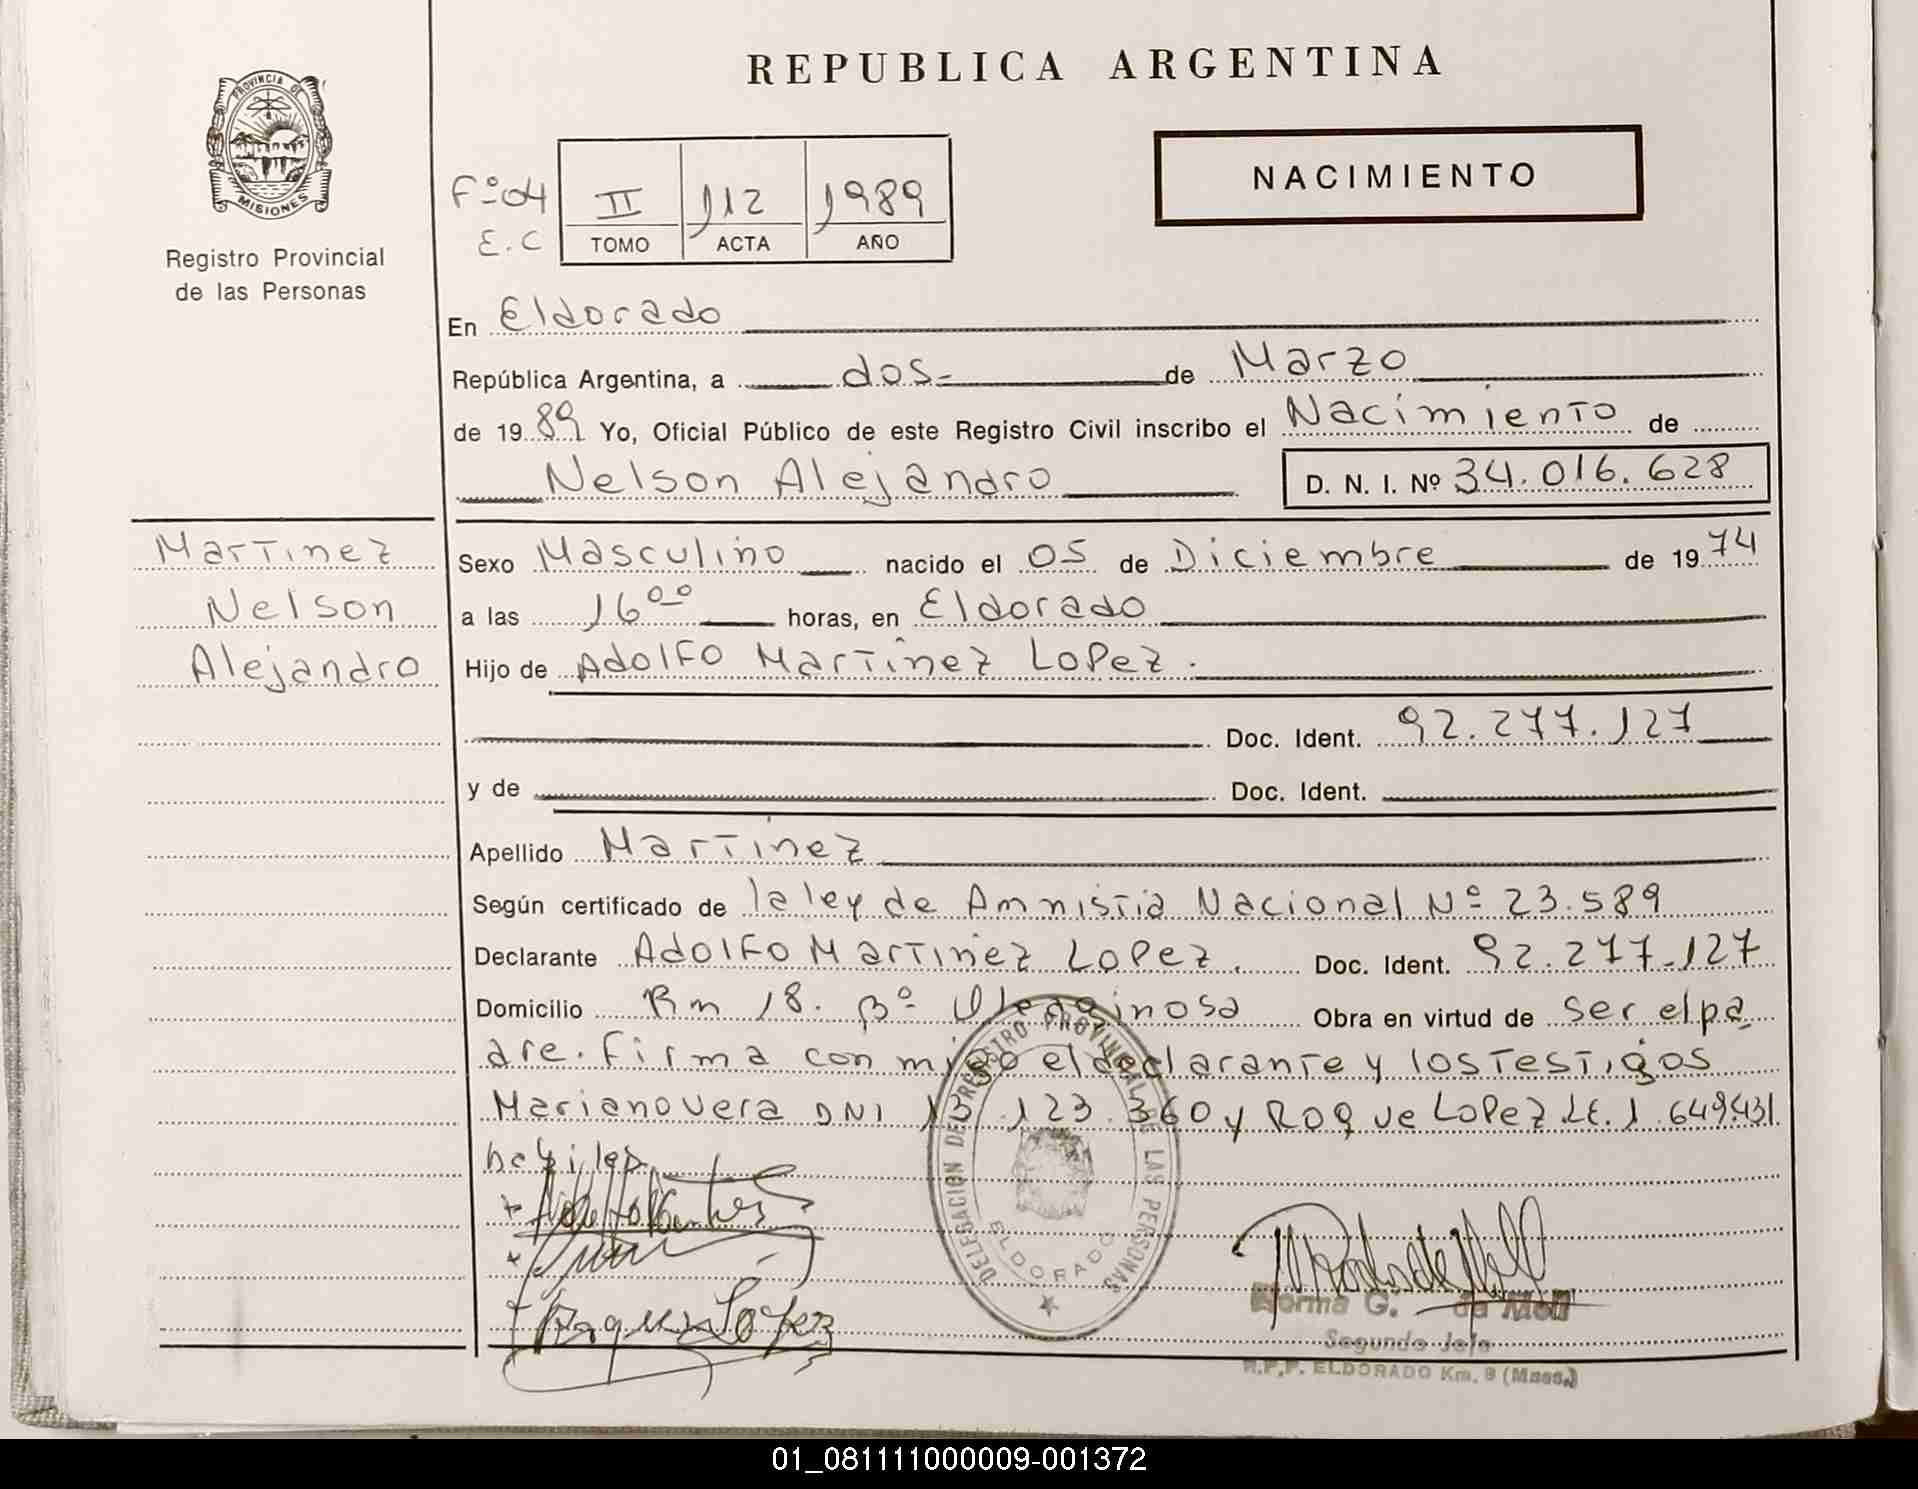 REPUBLICA ARGENTINA
PROVINCIA DE
MISIONES
Registro Provincial
de las Personas
NACIMIENTO
Fº 04
E.C
II 112 1989
TOMO ACTA AÑO
En Eldorado
República Argentina, a dos- de Marzo
de 1989 Yo, Oficial Público de este Registro Civil inscribo el Nacimiento de
Nelson Alejandro D. N. I. Nº 34.016.628
Martinez
Nelson
Alejandro
Sexo Masculino nacido el 05 de Diciembre de 1974
a las 16 00 horas, en Eldorado
Hijo de Adolfo Martinez Lopez.
Doc. Ident. 92.277.127
y de Doc. Ident.
Apellido Martinez
Según certificado de la ley de Amnistia Nacional Nº 23.589
Declarante Adolfo Martinez Lopez. Doc. Ident. 92.277.127
Domicilio Km 18. Bº Oleaginosa Obra en virtud de ser el pa
dre. Firma con migo el declarante y los testigos
Mariano Vera DNI 13.123.360 y Roque Lopez LE. 1.649.431.
habiles
DELEGACION DEL REGISTRO PROVINCIAL DE LAS PERSONAS
ELDORADO
Roque Lopez
Norma G. de Moll
Segundo Jefe
R.P.P. ELDORADO Km. 9 (Mnes.)
01_081111000009-001372